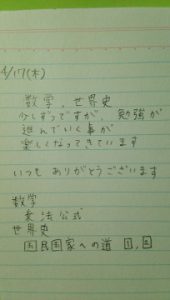 4/17(木)
数学、世界史
少しずつですが、勉強が
進んでいく事が
楽しくなってきています
いつもありがとうございます
数学
乗法公式
世界史
国民国家への道 1, 2